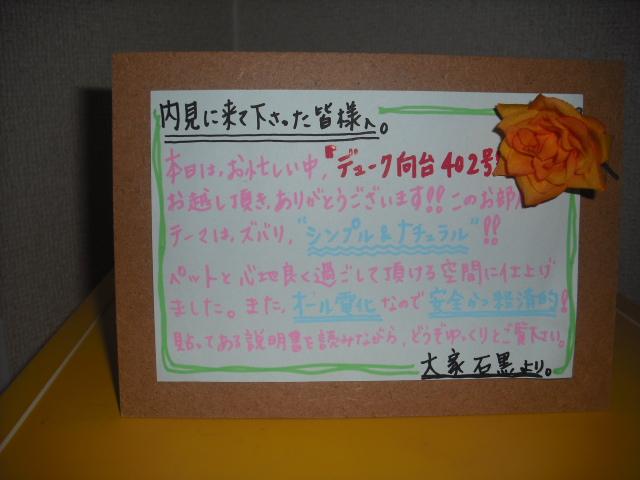 内見に来て下さった皆様へ。
本日は、お忙しい中、"デューク向台402号
お越し頂き、ありがとうございます!! このお部
テーマは、ズバリ、"シンプル&ナチュラル"!!
ペットと心地良く過ごして頂ける空間に仕上げ
ました。また、オール電化なので安全かつ経済的!
貼ってある説明書を読みながら、どうぞゆっくりとご覧下さい。
大家 石黒より。